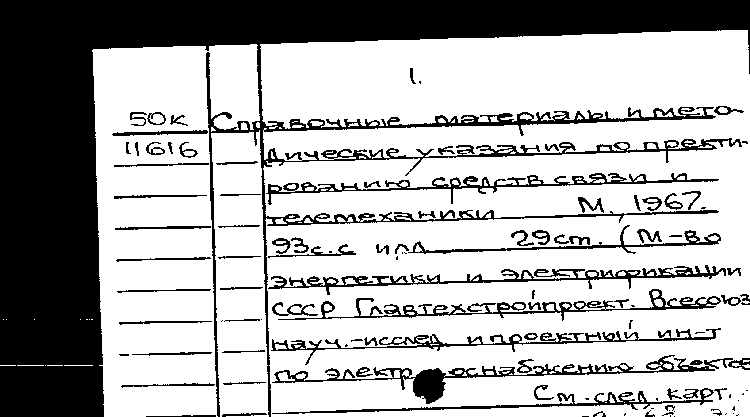 1.
50к Справочные материалы и мето-
11616 дические указания по пректи-
рованию средств связи и
телемеханики М., 1967.
93с. с илл 29см. (М-во
энергетики и электрификации
СССР Главтехстройпроект. Всесоюз
науч.-исслед. и проектный ин-т
по электр оснабжению объектов
См. след. карт.